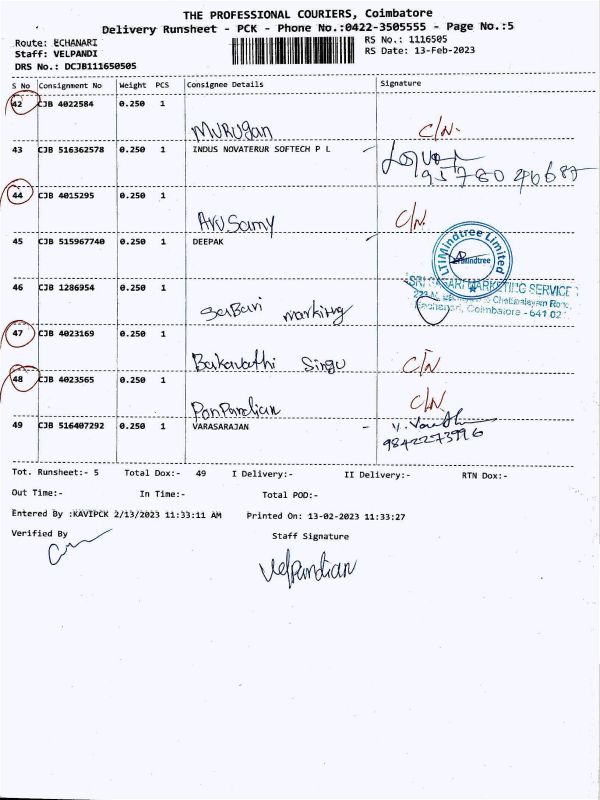 THE PROFESSIONAL COURIERS, Coimbatore
Delivery Runsheet - PCK - Phone No.:0422-3505555 - Page No.:5
Route: ECHANARI
Staff: VELPANDI
DRS No.: DCJB111650505
RS No.: 1116505
RS Date: 13-Feb-2023
S No Consignment No Weight PCS Consignee Details Signature
42 CJB 4022584 0.250 1
Murugan C/N.
43 CJB 516362578 0.250 1 INDUS NOVATERUR SOFTECH P L
95780 46687
44 CJB 4015295 0.250 1
Aru Samy C/N.
45 CJB 515967740 0.250 1 DEEPAK
LTIMindtree Limited
LTIMindtree
46 CJB 1286954 0.250 1
SaBari marking
SRI SABARI MARKETING SERVICE
Eachanari, Coimbatore - 641 02
47 CJB 4023169 0.250 1
Bakavathi Singu C/N
48 CJB 4023565 0.250 1
PonPandian C/N.
49 CJB 516407292 0.250 1 VARASARAJAN
9842273996
Tot. Runsheet:- 5 Total Dox:- 49 I Delivery:- II Delivery:- RTN Dox:-
Out Time:- In Time:- Total POD:-
Entered By :KAVIPCK 2/13/2023 11:33:11 AM Printed On: 13-02-2023 11:33:27
Verified By Staff Signature
Velpandian